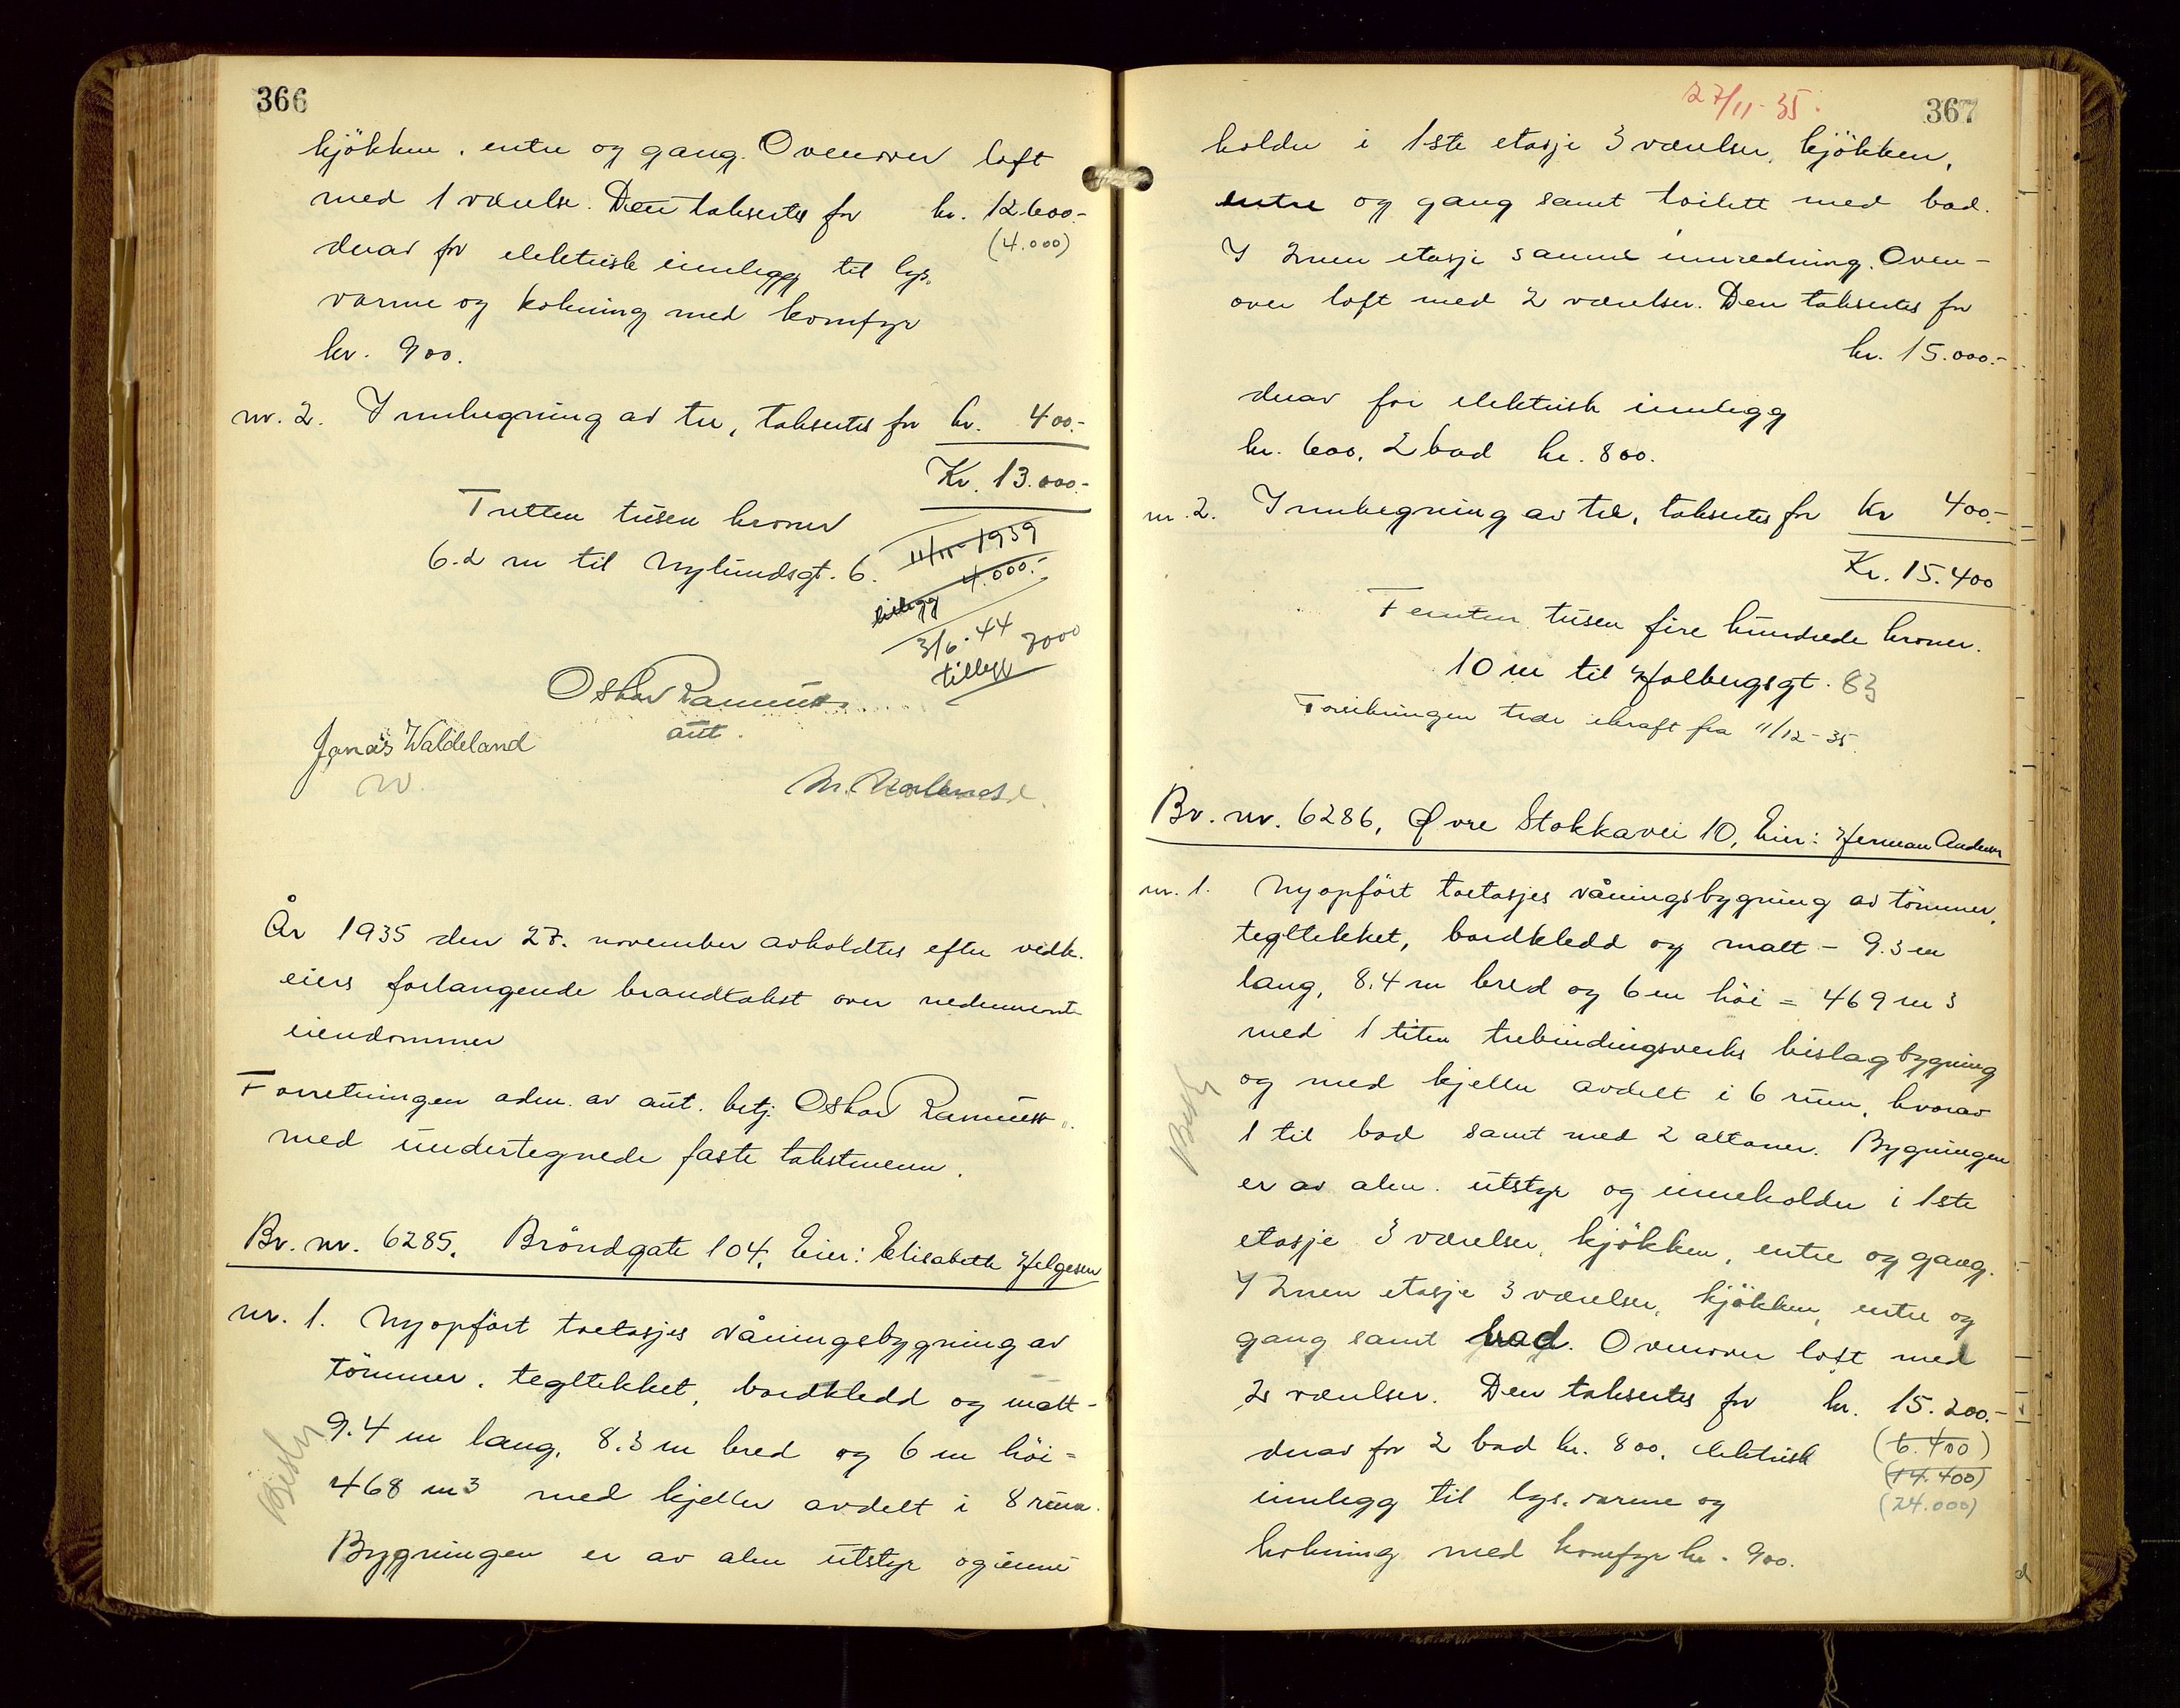 366
kjökken, entre og gang. Ovenover loft
med 1 værelse. Den taksertes for kr. 12.600.-
(4.000)
derav for elektrisk innlegg til lys,
varme og kokning med komfyr
kr. 900.
nr. 2. Innhegning av tre, taksertes for kr. 400.-
Kr. 13.000.-
Tretten tusen kroner
6.2 m til Nylundsgt. 6.
11/11-1939
tillegg 4.000.-
3/6-44
tillegg 7000
Oskar Rasmuss.
aut.
Jonas Waldeland
År 1935 den 27. november avholdtes efter vedk.
eiers forlangende brandtakst over nedennevnte
eiendommer
Forretningen adm. av aut. betj. Oskar Rasmuss.
med undertegnede faste takstmenn.
Br. nr. 6285. Bröndgate 104, Eier: Elisabeth Helgesen
nr. 1. Nyopfört toetasjes våningsbygning av
tömmer, tegltekket, bordkledd og malt -
9.4 m lang, 8.3 m bred og 6 m höi =
468 m3 med kjeller avdelt i 8 rum.
Bygningen er av alm utstyr og inne
27/11-35.
367
holder i 1ste etasje 3 værelser, kjökken,
entre og gang samt toilett med bad.
I 2nen etasje samme innredning. Oven-
over loft med 2 værelser. Den taksertes for
kr. 15.000.-
derav for elektrisk innlegg
kr. 600, 2 bad kr. 800.
nr. 2. Innhegning av tre, taksertes for Kr 400.-
Kr. 15.400
Femten tusen fire hundrede kroner.
10 m til Holbergsgt. 83
Forsikringen trær ikraft fra 11/12-35.
Br. nr. 6286, Øvre Stokkavei 10, Eier: Herman Andersen
nr. 1. Nyopfört toetasjes våningsbygning av tömmer,
tegltekket, bordkledd og malt - 9.3 m
lang, 8.4 m bred og 6 m höi = 469 m3
med 1 liten trebindingsverks bislagbygning
og med kjeller avdelt i 6 rum, hvorav
1 til bad samt med 2 altaner. Bygningen
er av alm. utstyr og inneholder i 1ste
etasje 3 værelser, kjökken, entre og gang.
I 2nen etasje 3 værelser, kjökken, entre og
gang samt bad. Ovenover loft med
2 værelser. Den taksertes for kr. 15.200.-
derav for 2 bad kr. 800, elektrisk (6.400)
(14.400)
innlegg til lys, varme og (24.000)
kokning med komfyr kr. 900.